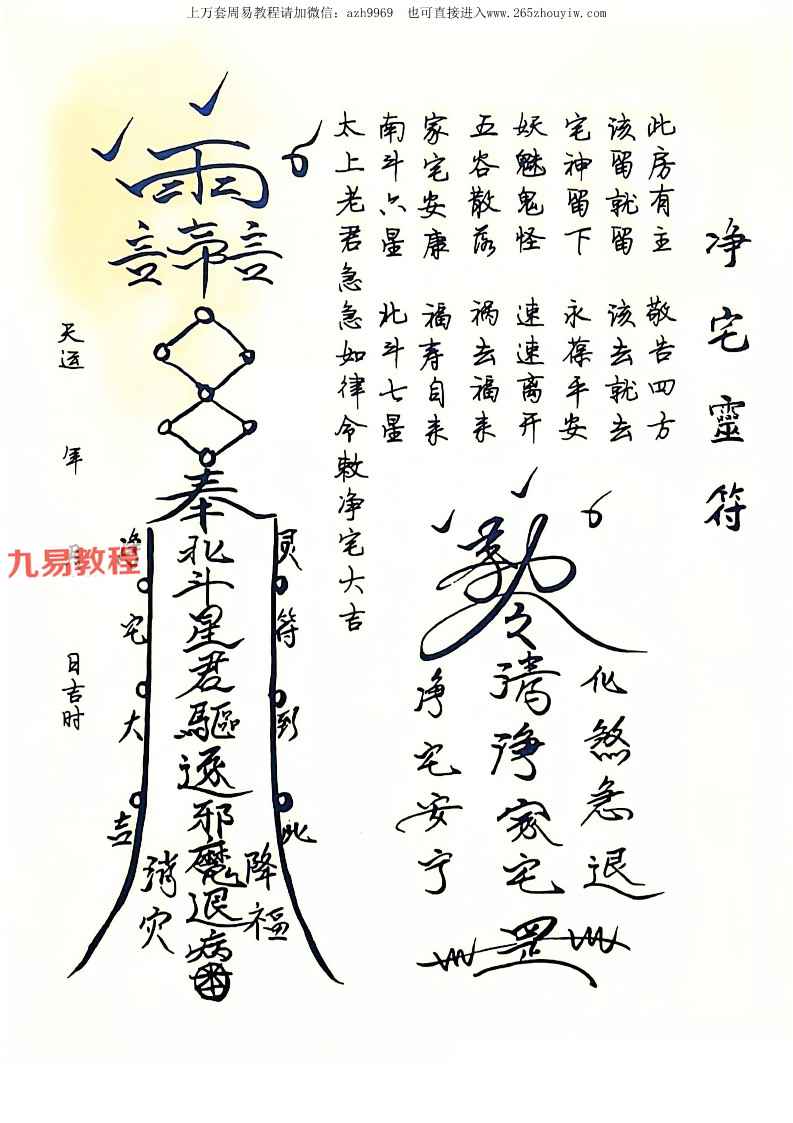 上万套周易教程请加微信：azh9969　也可直接进入www.265zhouyiw.com
净宅靈符
此房有主　敬告四方
该留就留　该去就去
宅神留下　永葆平安
妖魅鬼怪　速速离开
五谷散落　祸去福来
家宅安康　福寿自来
南斗六星　北斗七星
太上老君急急如律令敕净宅大吉
化煞急退
清净家宅罡
净宅安宁
灵符到此
降福
奉北斗星君驅逐邪魔退病
消灾
净宅大吉
天运　年　月　日吉时
九易教程